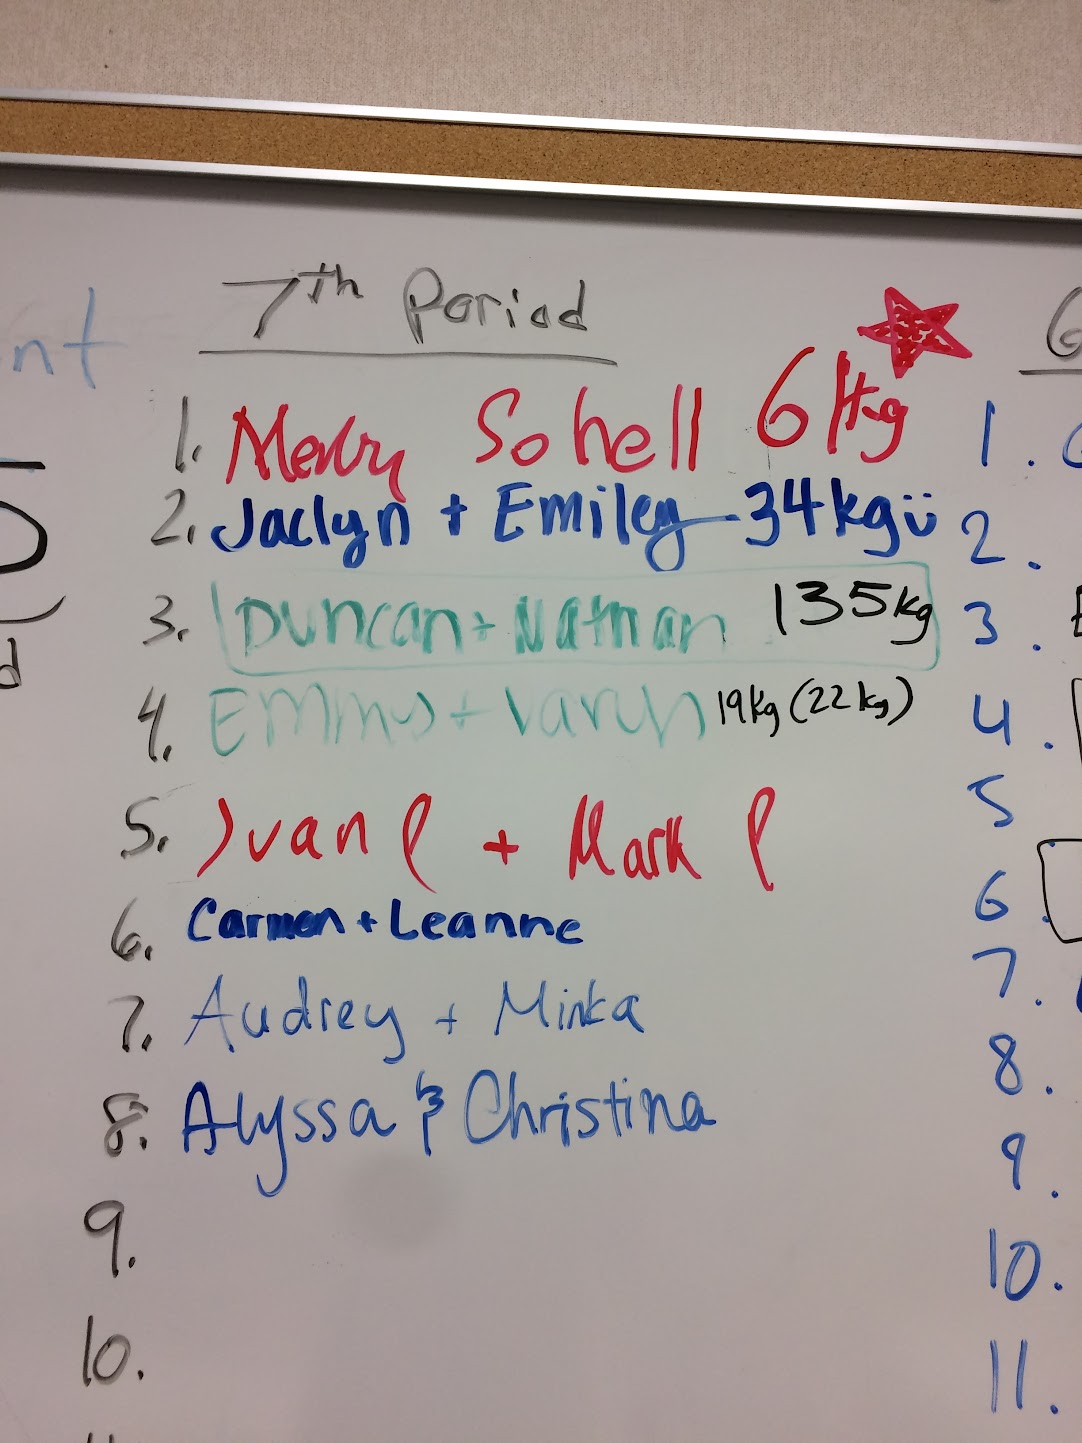 7th Period
nt
1. Sohell 61kg
2. Jaclyn + Emiley - 34kg ü
3. Duncan + Nathan 135kg
4. Emms + Varun 19kg (22kg)
5. Ivan P + Mark P
6. Carmen + Leanne
7. Audrey + Minka
8. Alyssa & Christina
9.
10.
11
G
1.
2.
3.
4.
5
6.
7.
8.
9.
10.
11.
d